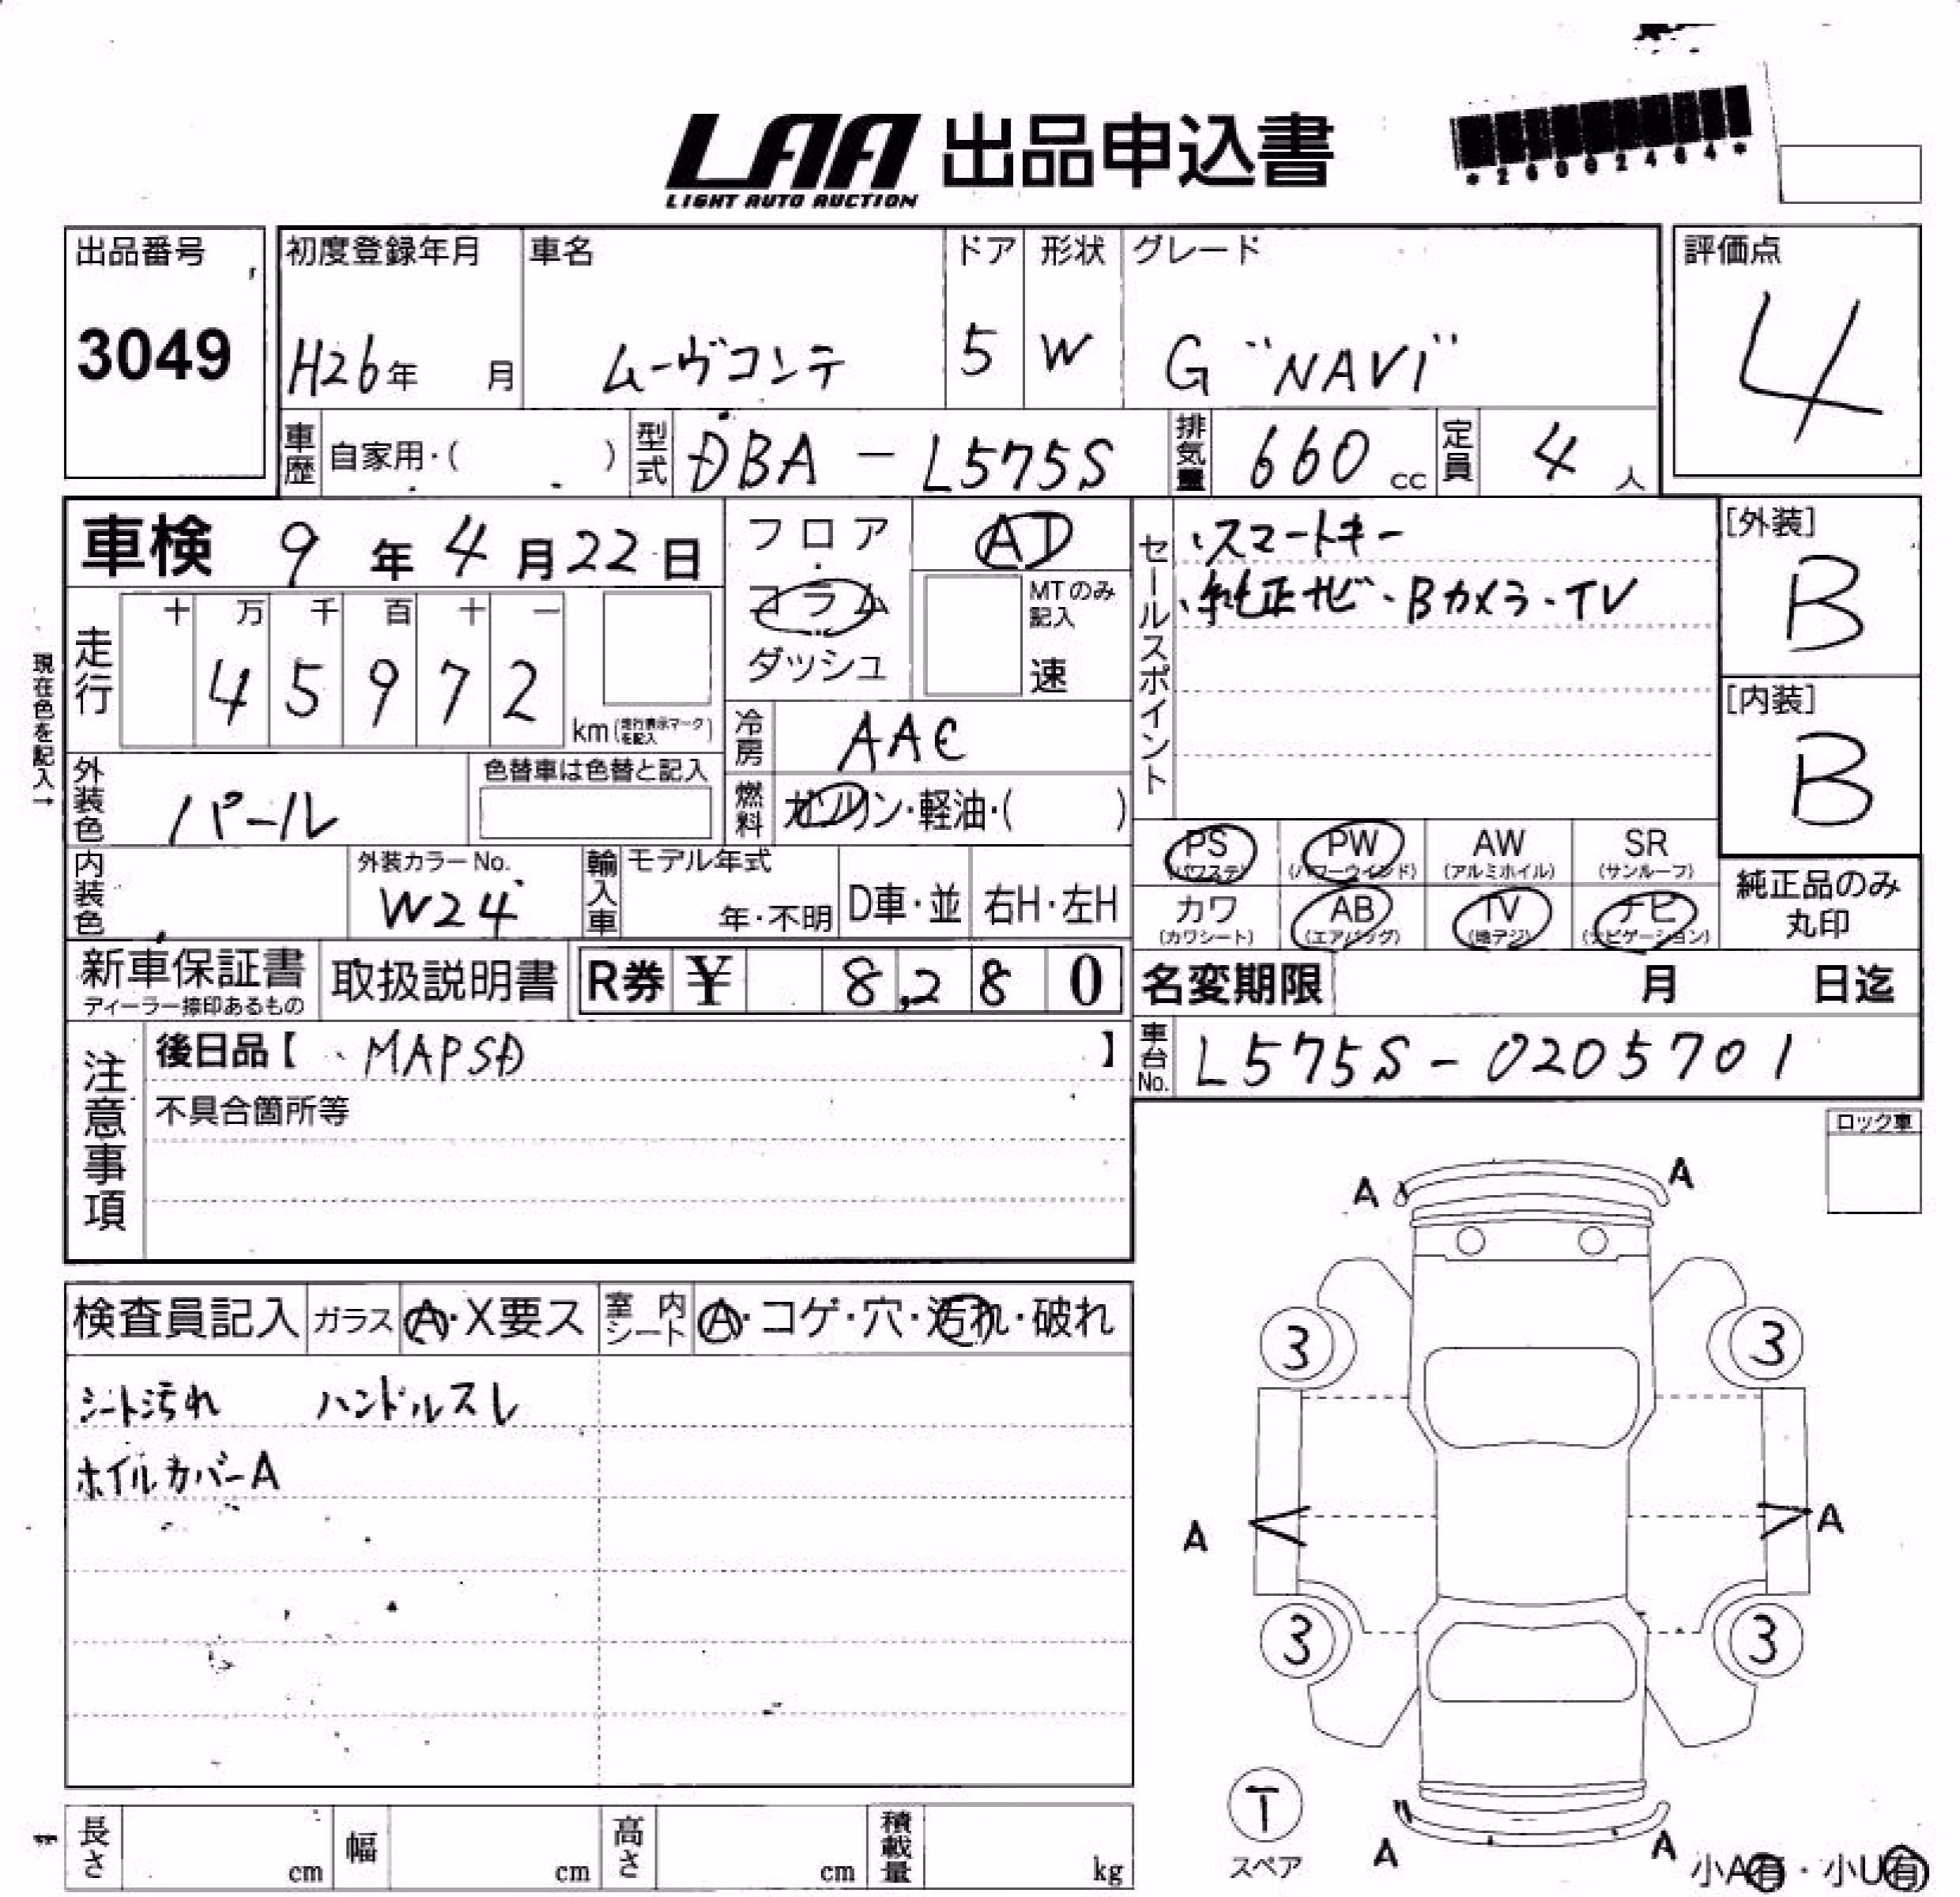 LAA 出品申込書
LIGHT AUTO AUCTION
*26002464*
出品番号
3049
初度登録年月
H26年 月
車名
ムーヴコンテ
ドア
5
形状
W
グレード
G "NAVI"
評価点
4
車歴 自家用・( )
型式 DBA - L575S
排気量 660 cc
定員 4 人
車検 9 年 4 月 22 日
フロア
コラム
ダッシュ
AT
MTのみ
記入
速
セールスポイント
、スマートキー
、純正ナビ・Bカメラ・TV
[外装]
B
[内装]
B
現在色を記入→
走行
十 万 千 百 十 一
4 5 9 7 2
km(走行表示マークを記入)
冷房 AAC
外装色 パール
色替車は色替と記入
燃料 ガソリン・軽油・( )
PS
(パワステ)
PW
(パワーウインド)
AW
(アルミホイル)
SR
(サンルーフ)
カワ
(カワシート)
AB
(エアバッグ)
TV
(地デジ)
ナビ
(ナビゲーション)
純正品のみ
丸印
内装色
外装カラーNo.
W24
輸入車
モデル年式
年・不明
D車・並
右H・左H
新車保証書
ディーラー捺印あるもの
取扱説明書
R券 ¥ 8,280
名変期限 月 日迄
注意事項
後日品【 、MAPSD 】
不具合箇所等
車台No. L575S-0205701
ロック車
検査員記入
ガラス A・X要ス
室内シート A・コゲ・穴・汚れ・破れ
シート汚れ ハンドルスレ
ホイルカバーA
A A
3 3
A A
3 3
T
スペア
A A
小A有・小U有
長さ cm
幅 cm
高さ cm
積載量 kg